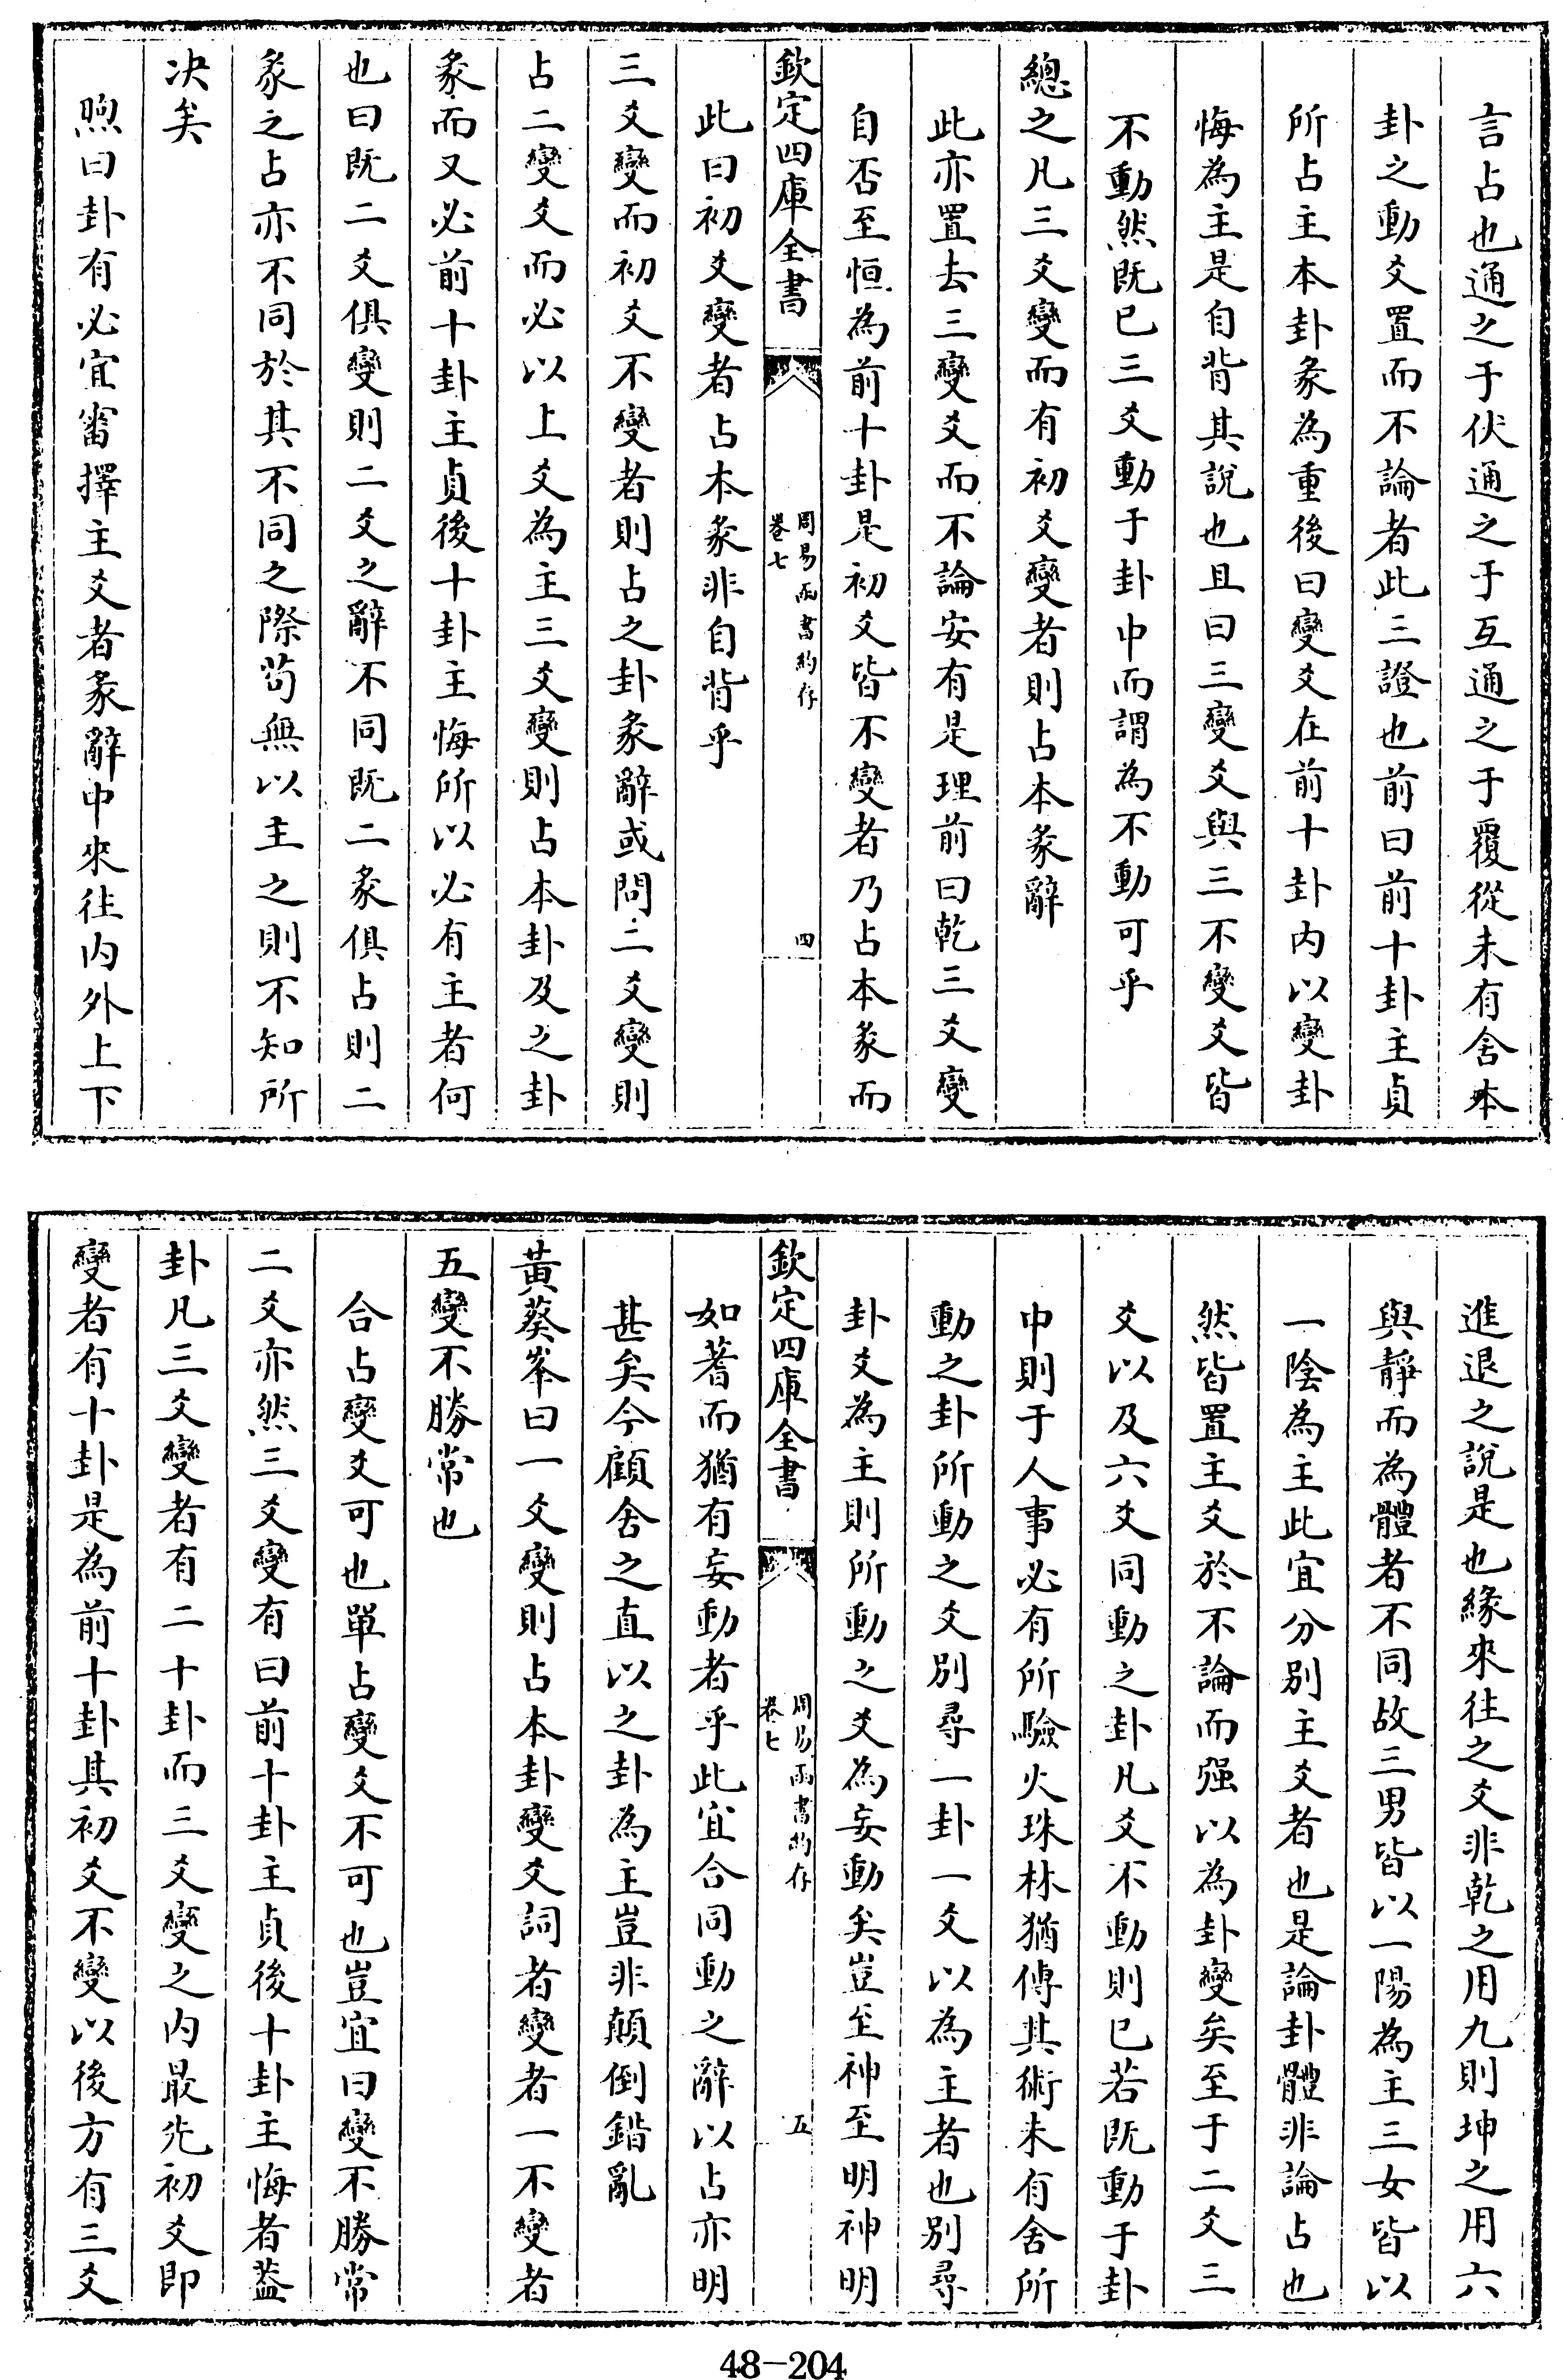 言占也通之于伏通之于互通之于覆從未有舍本
卦之動爻置而不論者此三證也前曰前十卦主貞
所占主本卦彖為重後曰變爻在前十卦内以變卦
悔為主是自背其說也且曰三變爻與三不變爻皆
不動然既已三爻動于卦中而謂為不動可乎
總之凡三爻變而有初爻變者則占本彖辭
此亦置去三變爻而不論安有是理前曰乾三爻變
自否至恒為前十卦是初爻皆不變者乃占本彖而
欽定四庫全書
周易函書約存
卷七
四
此曰初爻變者占本彖非自背乎
三爻變而初爻不變者則占之卦彖辭或問二爻變則
占二變爻而必以上爻為主三爻變則占本卦及之卦
彖而又必前十卦主貞後十卦主悔所以必有主者何
也曰既二爻俱變則二爻之辭不同既二彖俱占則二
彖之占亦不同於其不同之際茍無以主之則不知所
决矣
煦曰卦有必宜審擇主爻者彖辭中來往内外上下
進退之說是也緣來往之爻非乾之用九則坤之用六
與靜而為體者不同故三男皆以一陽為主三女皆以
一陰為主此宜分别主爻者也是論卦體非論占也
然皆置主爻於不論而强以為卦變矣至于二爻三
爻以及六爻同動之卦凡爻不動則已若既動于卦
中則于人事必有所驗火珠林猶傳其術未有舍所
動之卦所動之爻别尋一卦一爻以為主者也别尋
卦爻為主則所動之爻為妄動矣豈至神至明神明
欽定四庫全書
周易函書約存
卷七
五
如蓍而猶有妄動者乎此宜合同動之辭以占亦明
甚矣今顧舍之直以之卦為主豈非顛倒錯亂
黃葵峯曰一爻變則占本卦變爻詞者變者一不變者
五變不勝常也
合占變爻可也單占變爻不可也豈宜曰變不勝常
二爻亦然三爻變有曰前十卦主貞後十卦主悔者葢
卦凡三爻變者有二十卦而三爻變之内最先初爻即
變者有十卦是為前十卦其初爻不變以後方有三爻
48-204